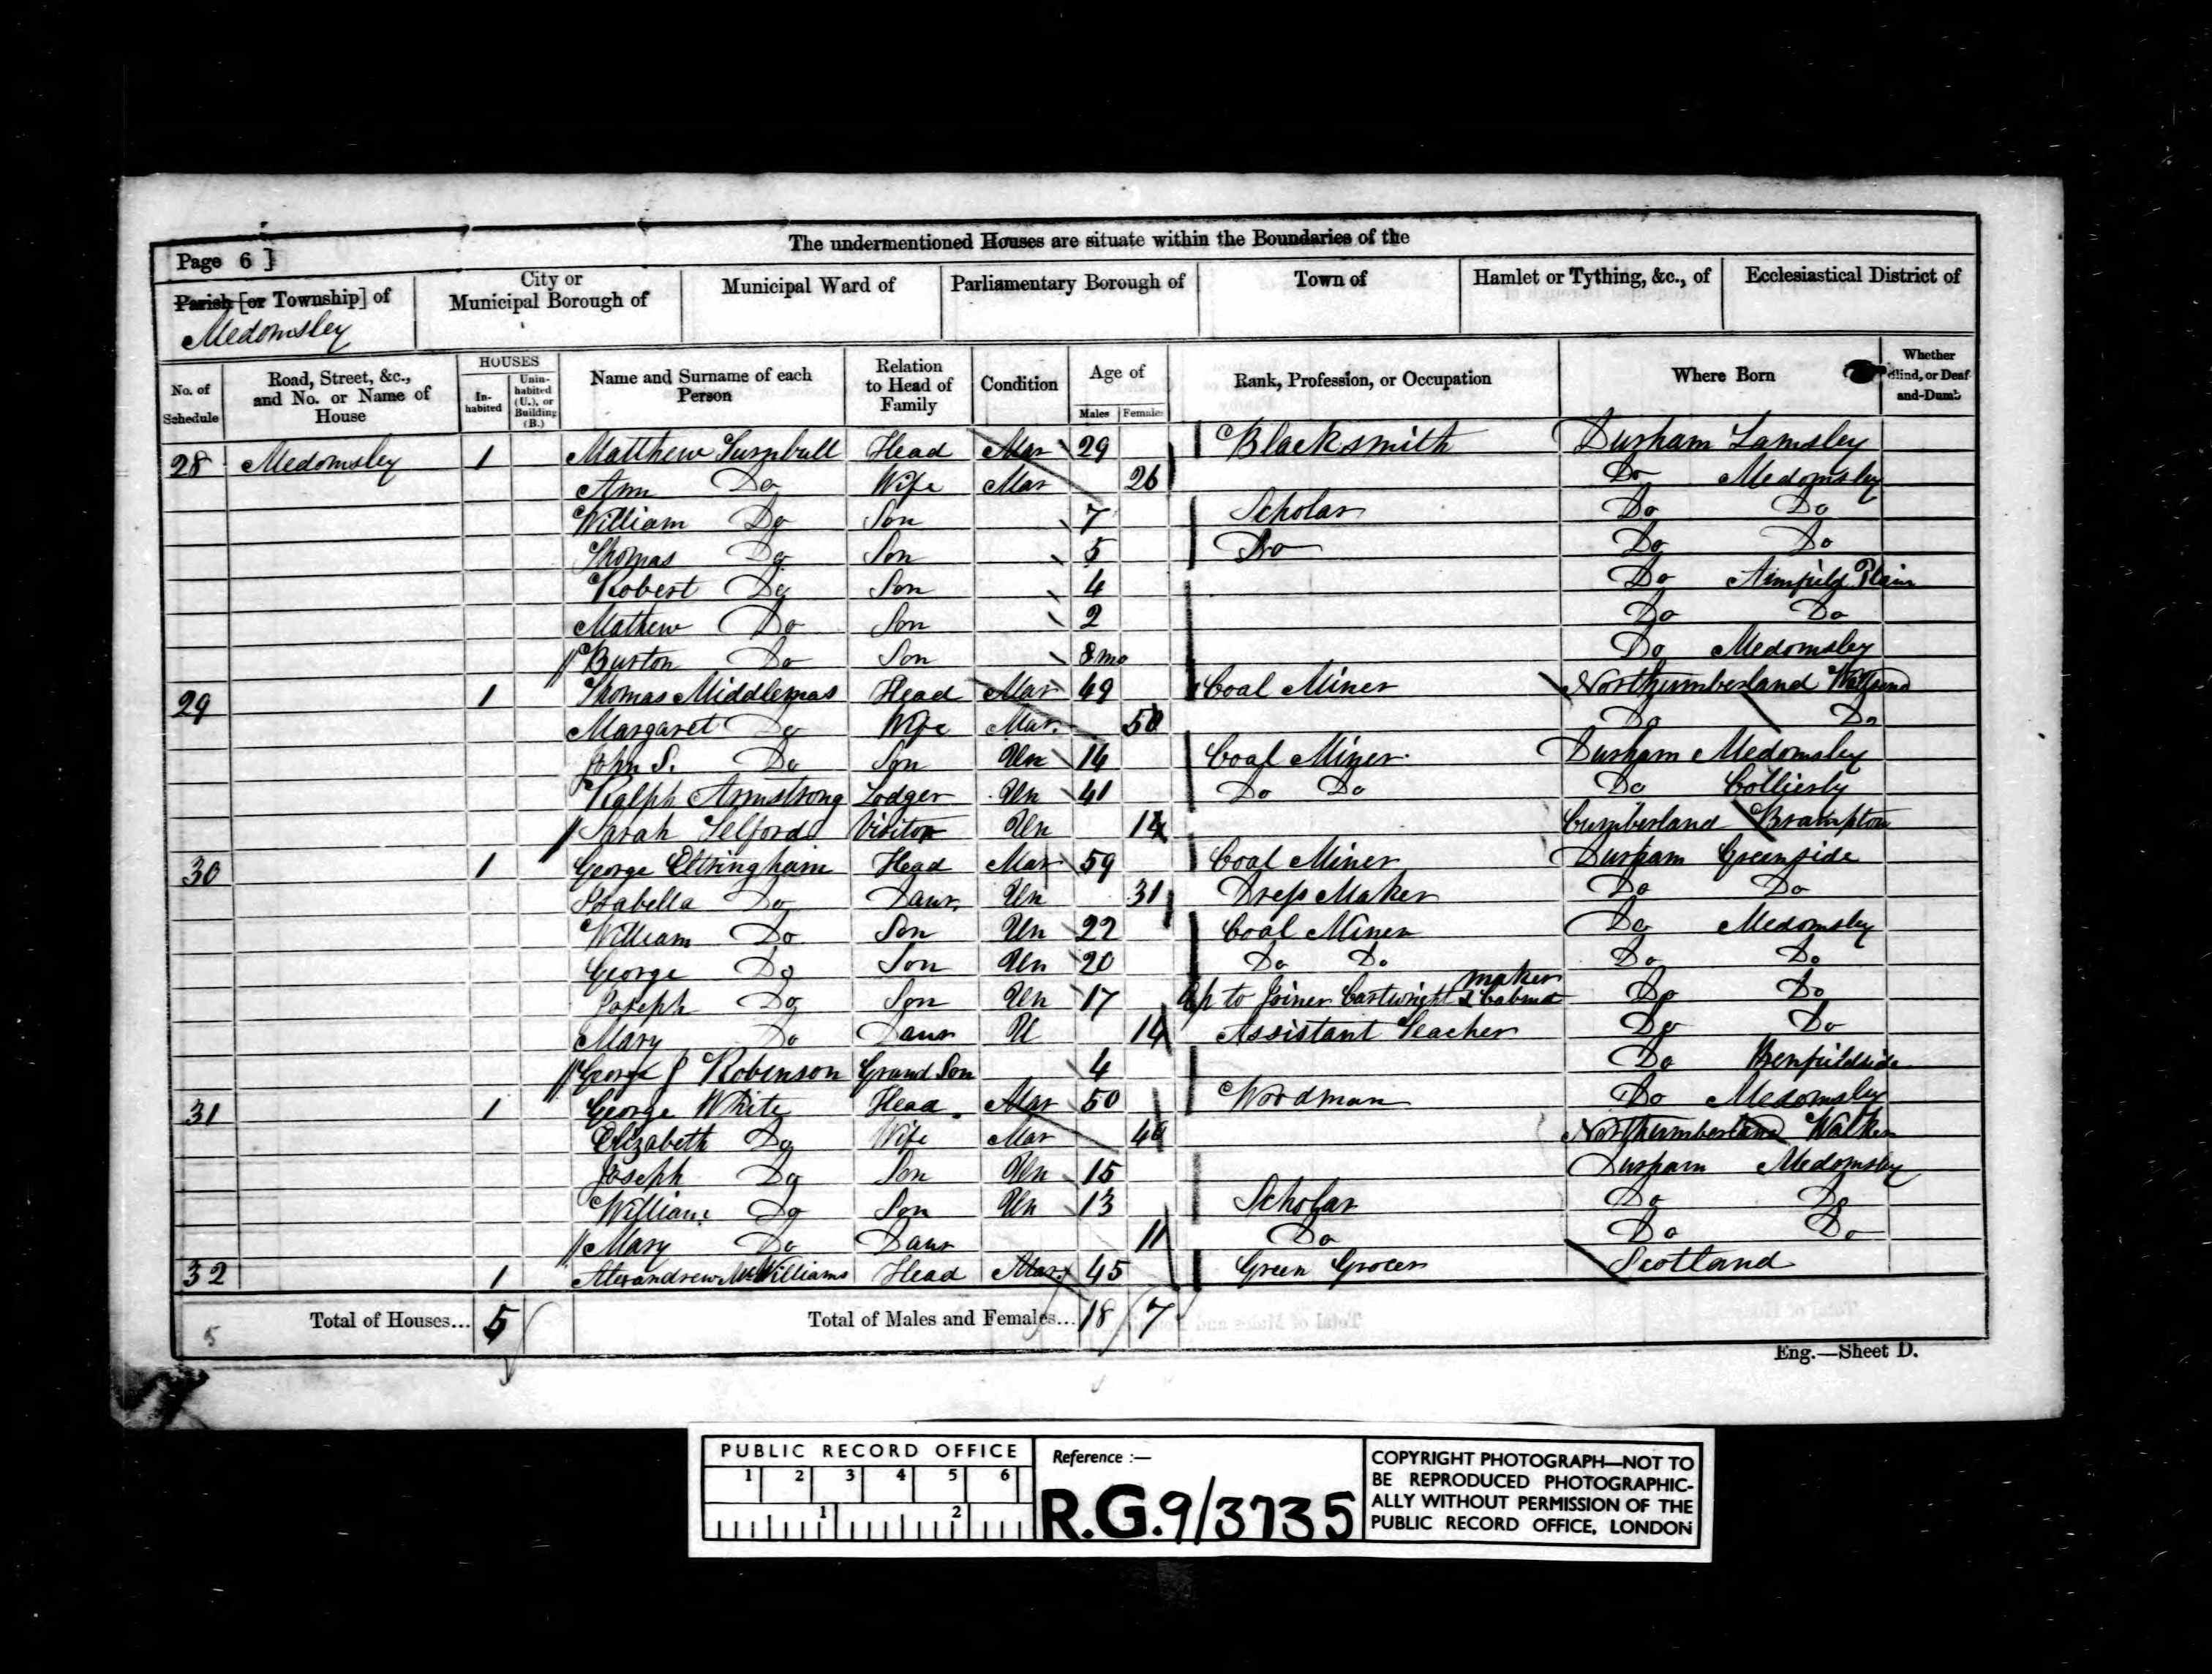 The undermentioned Houses are situate within the Boundaries of the
Page 6 ]
Parish [or Township] of
Medomsley
City or
Municipal Borough of
Municipal Ward of
Parliamentary Borough of
Town of
Hamlet or Tything, &c., of
Ecclesiastical District of
No. of Schedule
Road, Street, &c., and No. or Name of House
HOUSES
In-habited
Unin-habited (U.), or Building (B.)
Name and Surname of each Person
Relation to Head of Family
Condition
Age of
Males
Females
Rank, Profession, or Occupation
Where Born
Whether Blind, or Deaf-and-Dumb
28 Medomsley 1 Matthew Turnbull Head Mar 29 Blacksmith Durham Lamsley
Ann Do Wife Mar 26 Do Medomsley
William Do Son 7 Scholar Do Do
Thomas Do Son 5 Do Do Do
Robert Do Son 4 Do Plain
Mathew Do Son 2 Do Do
Burton Do Son 8 mo Do Medomsley
29 1 Thomas Middlemas Head Mar 49 Coal Miner Northumberland Wallsend
Margaret Do Wife Mar. 50 Do Do
John S. Do Son Un 14 Coal Miner Durham Medomsley
Ralph Armstrong Lodger Un 41 Do Do Do
Sarah Telford Visitor Un 14 Cumberland Brampton
30 1 George Eltringham Head Mar 59 Coal Miner Durham Greenside
Isabella Do Daur. Un 31 Dress Maker Do Do
William Do Son Un 22 Coal Miner Do Medomsley
George Do Son Un 20 Do Do Do Do
Joseph Do Son Un 17 Ap to Joiner Cartwright & Cabinet maker Do Do
Mary Do Daur U 14 Assistant Teacher Do Do
George J Robinson Grand Son 4 Do Benfieldside
31 1 George White Head Mar 50 Woodman Do Medomsley
Elizabeth Do Wife Mar 46 Northumberland Walker
Joseph Do Son Un 15 Durham Medomsley
William Do Son Un 13 Scholar Do Do
Mary Do Daur 11 Do Do Do
32 1 Alexandrew McWilliams Head Mar. 45 Green Grocer Scotland
5
Total of Houses... 5
Total of Males and Females... 18 7
Eng.—Sheet D.
PUBLIC RECORD OFFICE
1 2 3 4 5 6
1 2
Reference :—
R.G.9/3735
COPYRIGHT PHOTOGRAPH—NOT TO
BE REPRODUCED PHOTOGRAPHIC-
ALLY WITHOUT PERMISSION OF THE
PUBLIC RECORD OFFICE, LONDON